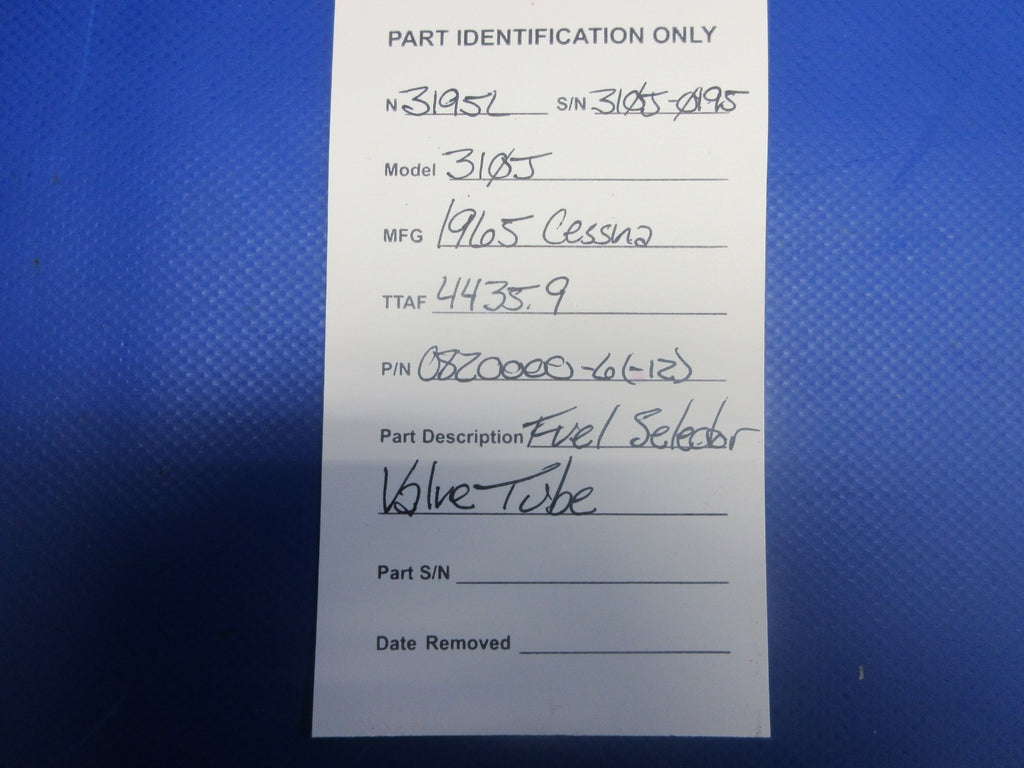 PART IDENTIFICATION ONLY
N 3195L S/N 310J-0195
Model 310J
MFG 1965 Cessna
TTAF 4435.9
P/N 0820000-6(-12)
Part Description Fuel Selector
Valve Tube
Part S/N
Date Removed